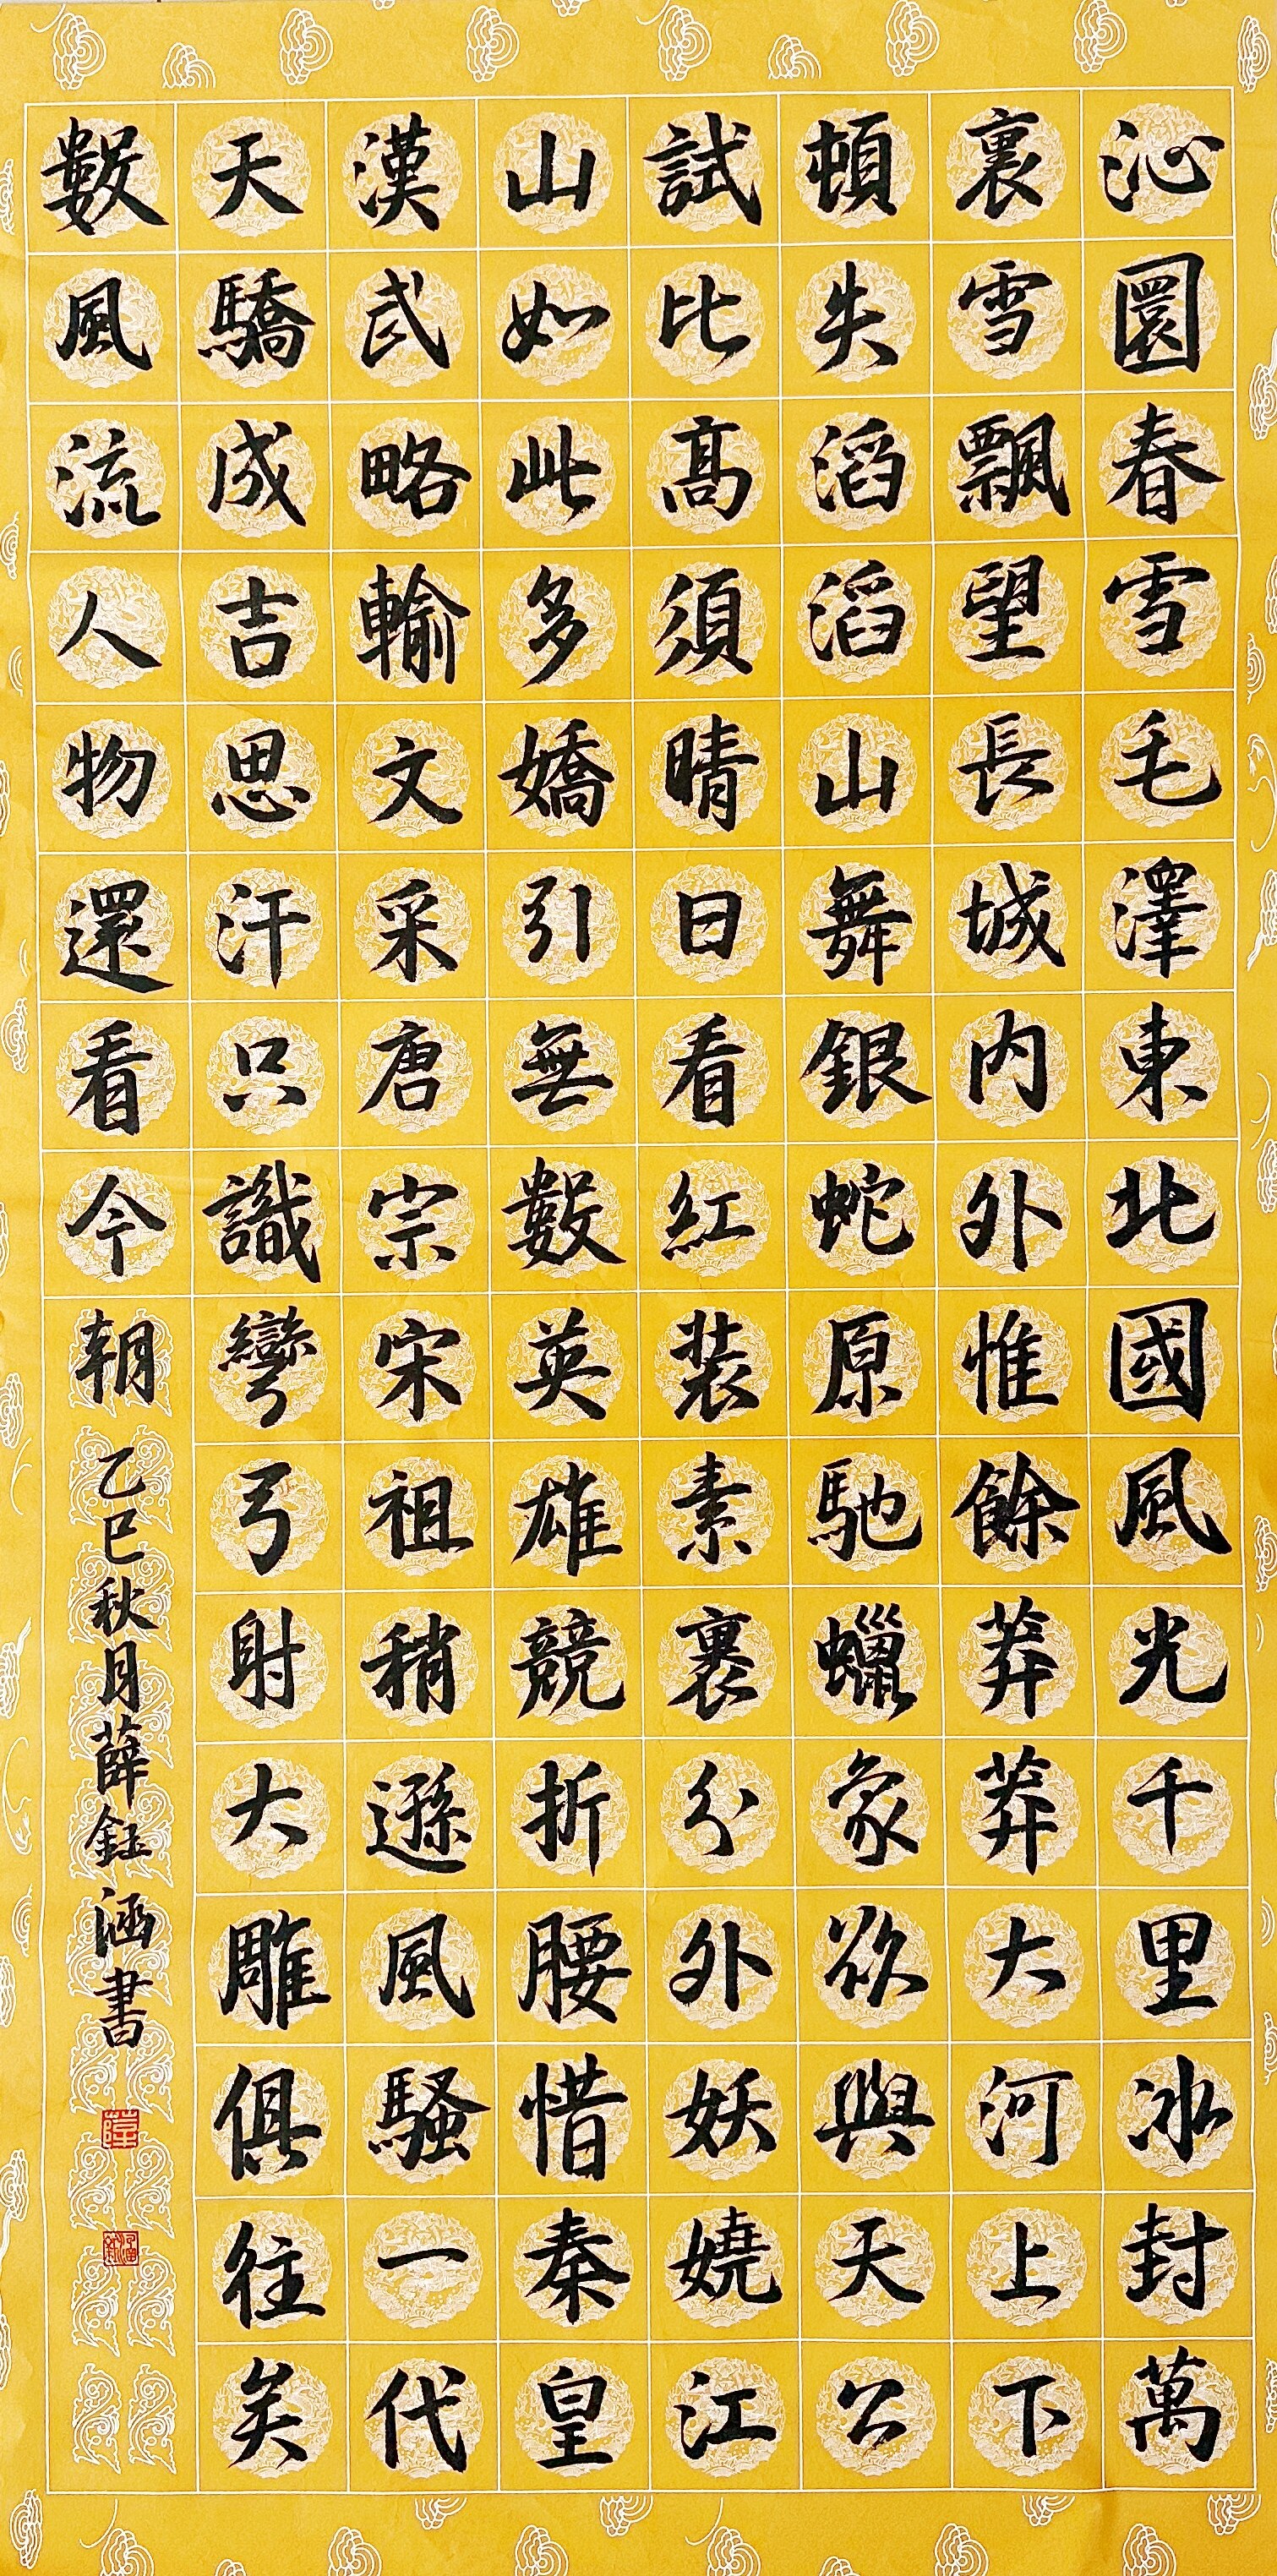 沁圜春雪毛澤東北國風光千里冰封萬
裏雪飄望長城内外惟餘莽莽大河上下
頓失滔滔山舞銀蛇原馳蠟象欲與天公
試比高須晴日看紅装素裹分外妖嬈江
山如此多嬌引無數英雄競折腰惜秦皇
漢武略輸文采唐宗宋祖稍遜風騷一代
天驕成吉思汗只識彎弓射大雕俱往矣
數風流人物還看今朝
乙巳秋月薛鈺涵書
薛